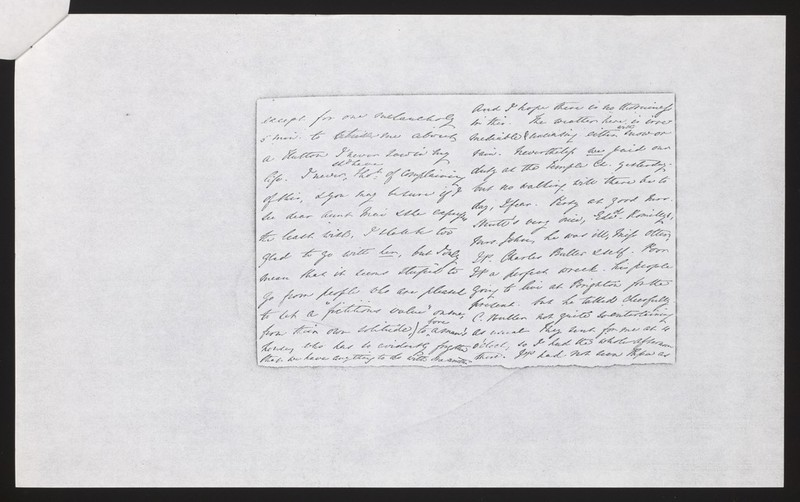 except for one melancholy
5 min. to
a Hutton I never saw in my
life. I never, tho't of complaining
of this, & you may be sure if
dear Aunt Mair
the least wish, I shall be too
glad to go with her, but I only
mean that it seems stupid to
go from people who are pleased
to set a "fictitious value" on me,
from their own solitude, to a man's
house, who has so evidently forgotten
that we have anything to do with
And I hope there is no
in this. The weather here is
with snow or
rain. Nevertheless we paid our
duty at the Temple Ch. yesterday.
but no walking will there be to
day, I fear. Party at good Mrs.
very nice, Edd. Romilly,
Mrs John, he was ill, Miss Otter,
Charles Buller & self. Poor
a perfect wreck. his people
going to live at Brighton for the
present. but he talked cheerfully
C. Buller not quite so entertaining
as usual. They sent for me at 4
o'clock, so I had the whole afternoon
there. had not seen Papa as